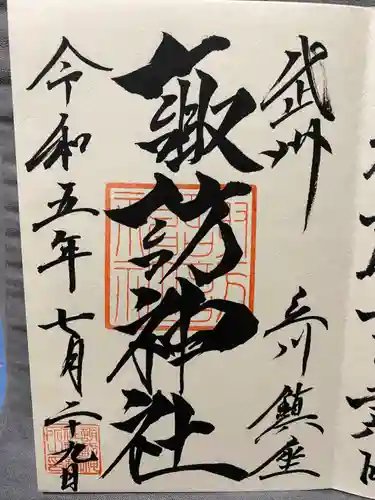 武州
立川鎮座
諏訪神社
令和五年七月二十九日